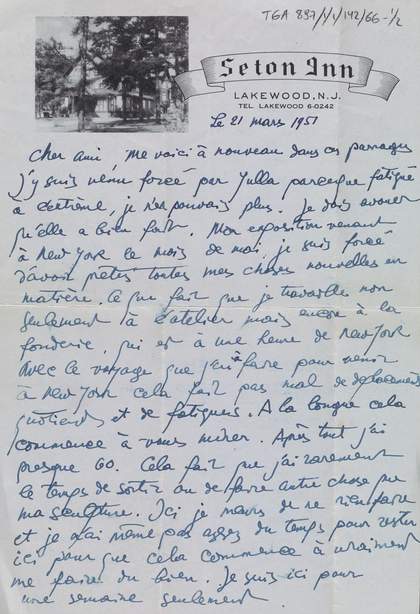 TGA 897/1/1/142/66-1/2
Seton Inn
LAKEWOOD, N.J.
TEL. LAKEWOOD 6-0242
Le 21 mars 1951
Cher ami, me voici à nouveau dans ces parrages
j'y suis venu forcé par Yulla parceque fatigué
à l'extrème, je n'en pouvais plus. Je dois avouer
qu'elle a bien fait. Mon exposition venant
à New York le mois de mai, je suis forcé
d'avoir prètes toutes mes choses nouvelles en
matière. Ce que fait que je travaille non
seulement à l'atelier mais encore à la
fonderie, qui est à une heure de New York
Avec le voyage que j'ai à faire pour venir
à New York cela fait pas mal de deplacements
quotidiens et de fatigues. A la longue cela
commence à vous miner. Après tout j'ai
presque 60. Cela fait que j'ai rarement
le temps de sortir ou de faire autre chose que
ma sculpture. Ici je meurs de ne rien faire
et je n'ai même pas assez du temps pour rester
ici pour que cela commence à vraiment
me faire du bien. Je suis ici pour
une semaine seulement.